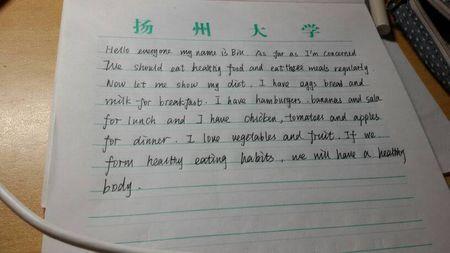 扬州大学
Hello everyone my name is Bill. As far as I'm concerned
We should eat healthy food and eat three meals regularly
Now let me show my diet. I have eggs bread and
milk for breakfast. I have hamburgers. bananas and sala
for lunch and I have chicken, tomatoes and apples
for dinner. I love vegetables and fruit. If we
form healthy eating habits, we will have a healthy
body.